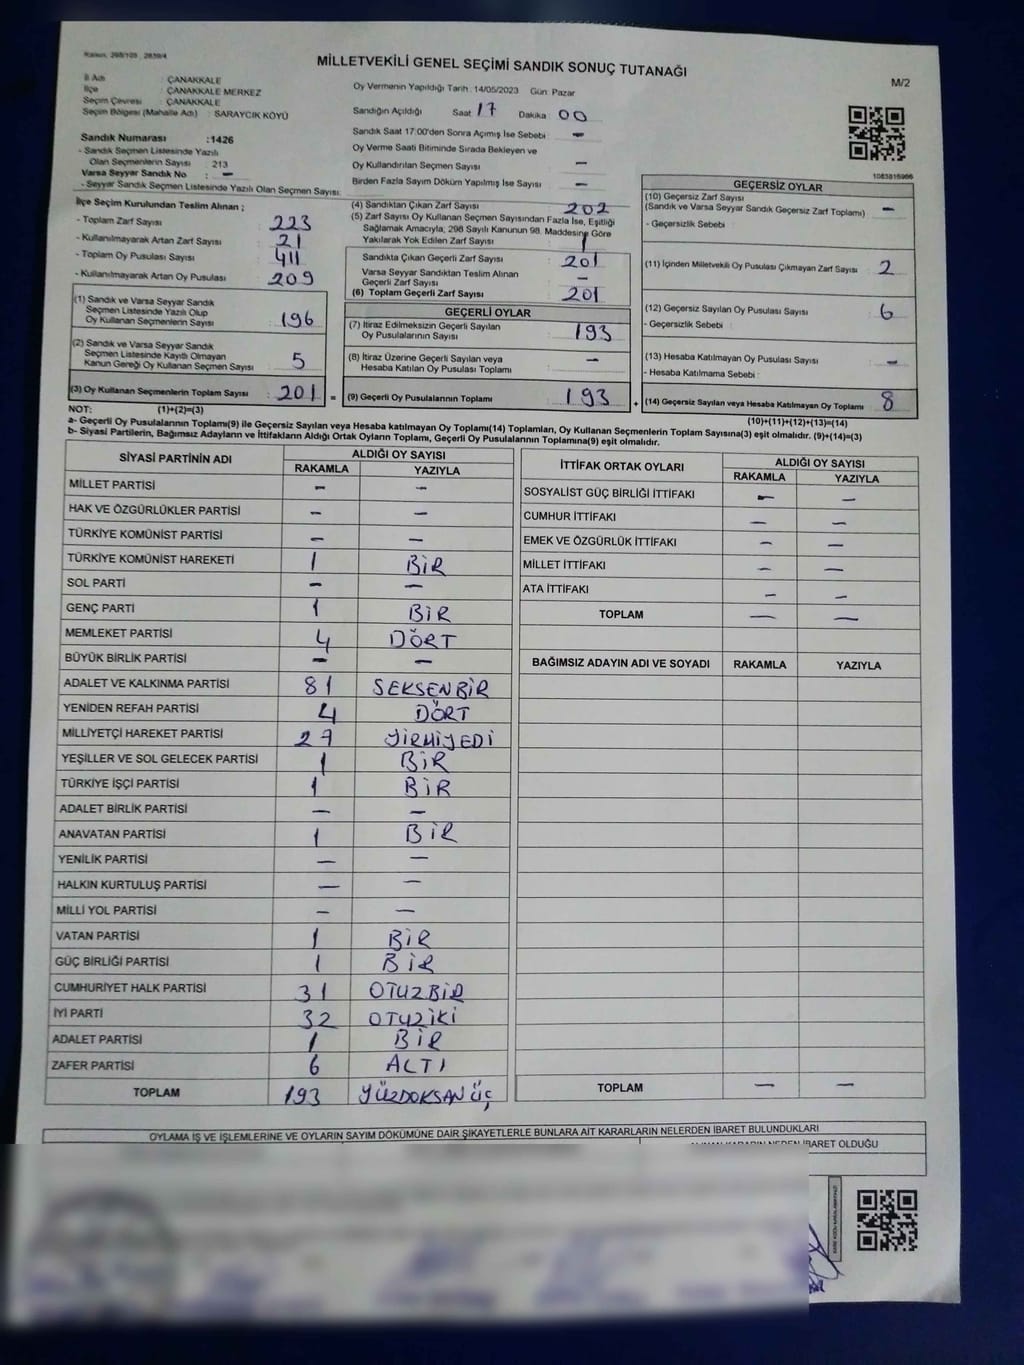 Kanun, 298/105 , 2839/4
MİLLETVEKİLİ GENEL SEÇİMİ SANDIK SONUÇ TUTANAĞI
M/2
İl Adı : ÇANAKKALE
İlçe : ÇANAKKALE MERKEZ
Seçim Çevresi : ÇANAKKALE
Seçim Bölgesi (Mahalle Adı) : SARAYCIK KÖYÜ
Oy Vermenin Yapıldığı Tarih : 14/05/2023 Gün: Pazar
Sandığın Açıldığı Saat 17 Dakika 00
Sandık Saat 17:00'den Sonra Açımış İse Sebebi : -
Oy Verme Saati Bitiminde Sırada Bekleyen ve
Oy Kullandırılan Seçmen Sayısı : -
Birden Fazla Sayım Döküm Yapılmış İse Sayısı : -
Sandık Numarası :1426
- Sandık Seçmen Listesinde Yazılı
Olan Seçmenlerin Sayısı : 213
Varsa Seyyar Sandık No : -
- Seyyar Sandık Seçmen Listesinde Yazılı Olan Seçmen Sayısı:
İlçe Seçim Kurulundan Teslim Alınan ;
- Toplam Zarf Sayısı : 223
- Kullanılmayarak Artan Zarf Sayısı : 21
- Toplam Oy Pusulası Sayısı : 411
- Kullanılmayarak Artan Oy Pusulası : 209
(1) Sandık ve Varsa Seyyar Sandık
Seçmen Listesinde Yazılı Olup
Oy Kullanan Seçmenlerin Sayısı : 196
(2) Sandık ve Varsa Seyyar Sandık
Seçmen Listesinde Kayıtlı Olmayan
Kanun Gereği Oy Kullanan Seçmen Sayısı : 5
(3) Oy Kullanan Seçmenlerin Toplam Sayısı : 201
(4) Sandıktan Çıkan Zarf Sayısı : 202
(5) Zarf Sayısı Oy Kullanan Seçmen Sayısından Fazla İse, Eşitliği
Sağlamak Amacıyla, 298 Sayılı Kanunun 98. Maddesine Göre
Yakılarak Yok Edilen Zarf Sayısı : 1
Sandıkta Çıkan Geçerli Zarf Sayısı : 201
Varsa Seyyar Sandıktan Teslim Alınan
Geçerli Zarf Sayısı : -
(6) Toplam Geçerli Zarf Sayısı : 201
GEÇERLİ OYLAR
(7) İtiraz Edilmeksizin Geçerli Sayılan
Oy Pusulalarının Sayısı : 193
(8) İtiraz Üzerine Geçerli Sayılan veya
Hesaba Katılan Oy Pusulası Toplamı : -
= (9) Geçerli Oy Pusulalarının Toplamı : 193
1083815966
GEÇERSİZ OYLAR
(10) Geçersiz Zarf Sayısı
(Sandık ve Varsa Seyyar Sandık Geçersiz Zarf Toplamı) : -
- Geçersizlik Sebebi :
(11) İçinden Milletvekili Oy Pusulası Çıkmayan Zarf Sayısı : 2
(12) Geçersiz Sayılan Oy Pusulası Sayısı : 6
- Geçersizlik Sebebi :
(13) Hesaba Katılmayan Oy Pusulası Sayısı : -
- Hesaba Katılmama Sebebi :
+ (14) Geçersiz Sayılan veya Hesaba Katılmayan Oy Toplamı : 8
NOT: (1)+(2)=(3) (10)+(11)+(12)+(13)=(14)
a- Geçerli Oy Pusulalarının Toplamı(9) ile Geçersiz Sayılan veya Hesaba katılmayan Oy Toplamı(14) Toplamları, Oy Kullanan Seçmenlerin Toplam Sayısına(3) eşit olmalıdır. (9)+(14)=(3)
b- Siyasi Partilerin, Bağımsız Adayların ve İttifakların Aldığı Ortak Oyların Toplamı, Geçerli Oy Pusulalarının Toplamına(9) eşit olmalıdır.
SİYASİ PARTİNİN ADI ALDIĞI OY SAYISI
RAKAMLA YAZIYLA
MİLLET PARTİSİ - -
HAK VE ÖZGÜRLÜKLER PARTİSİ - -
TÜRKİYE KOMÜNİST PARTİSİ - -
TÜRKİYE KOMÜNİST HAREKETİ 1 BİR
SOL PARTİ - -
GENÇ PARTİ 1 BİR
MEMLEKET PARTİSİ 4 DÖRT
BÜYÜK BİRLİK PARTİSİ - -
ADALET VE KALKINMA PARTİSİ 81 SEKSENBİR
YENİDEN REFAH PARTİSİ 4 DÖRT
MİLLİYETÇİ HAREKET PARTİSİ 27 YİRMİYEDİ
YEŞİLLER VE SOL GELECEK PARTİSİ 1 BİR
TÜRKİYE İŞÇİ PARTİSİ 1 BİR
ADALET BİRLİK PARTİSİ - -
ANAVATAN PARTİSİ 1 BİR
YENİLİK PARTİSİ - -
HALKIN KURTULUŞ PARTİSİ - -
MİLLİ YOL PARTİSİ - -
VATAN PARTİSİ 1 BİR
GÜÇ BİRLİĞİ PARTİSİ 1 BİR
CUMHURİYET HALK PARTİSİ 31 OTUZBİR
İYİ PARTİ 32 OTUZİKİ
ADALET PARTİSİ 1 BİR
ZAFER PARTİSİ 6 ALTI
TOPLAM 193 YÜZDOKSAN ÜÇ
İTTİFAK ORTAK OYLARI ALDIĞI OY SAYISI
RAKAMLA YAZIYLA
SOSYALİST GÜÇ BİRLİĞİ İTTİFAKI - -
CUMHUR İTTİFAKI - -
EMEK VE ÖZGÜRLÜK İTTİFAKI - -
MİLLET İTTİFAKI - -
ATA İTTİFAKI - -
TOPLAM - -
BAĞIMSIZ ADAYIN ADI VE SOYADI RAKAMLA YAZIYLA
TOPLAM - -
OYLAMA İŞ VE İŞLEMLERİNE VE OYLARIN SAYIM DÖKÜMÜNE DAİR ŞİKAYETLERLE BUNLARA AİT KARARLARIN NELERDEN İBARET BULUNDUKLARI
NEDEN İBARET OLDUĞU